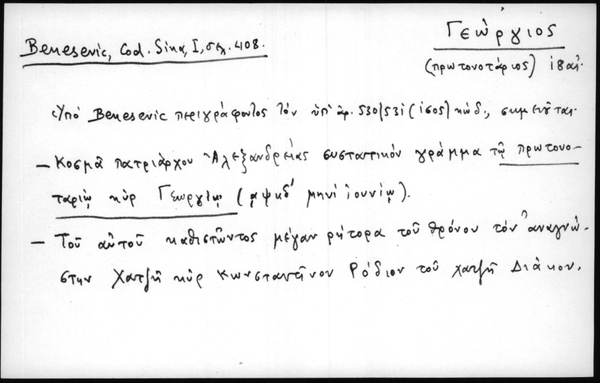 Γεώργιος
Benesevic, Cod. Sina, I, σελ. 408.
(πρωτονοτάριος) 18 αἰ.
Ὑπὸ Benesevic περιγράφοντος τὸν ὑπ' ἀρ. 530/531 (1505) κώδ., σημειοῦται
— Κοσμᾶ πατριάρχου Ἀλεξανδρείας συστατικὸν γράμμα τῷ πρωτονο-
ταρίῳ κὺρ Γεωργίῳ (αψκδ' μηνὶ ἰουνίῳ).
— Τοῦ αὐτοῦ καθιστῶντος μέγαν ρήτορα τοῦ θρόνου τὸν ἀναγνώ-
στην Χατζῆ κὺρ Κωνσταντῖνον Ρόδιον τοῦ χατζῆ Διάκου.